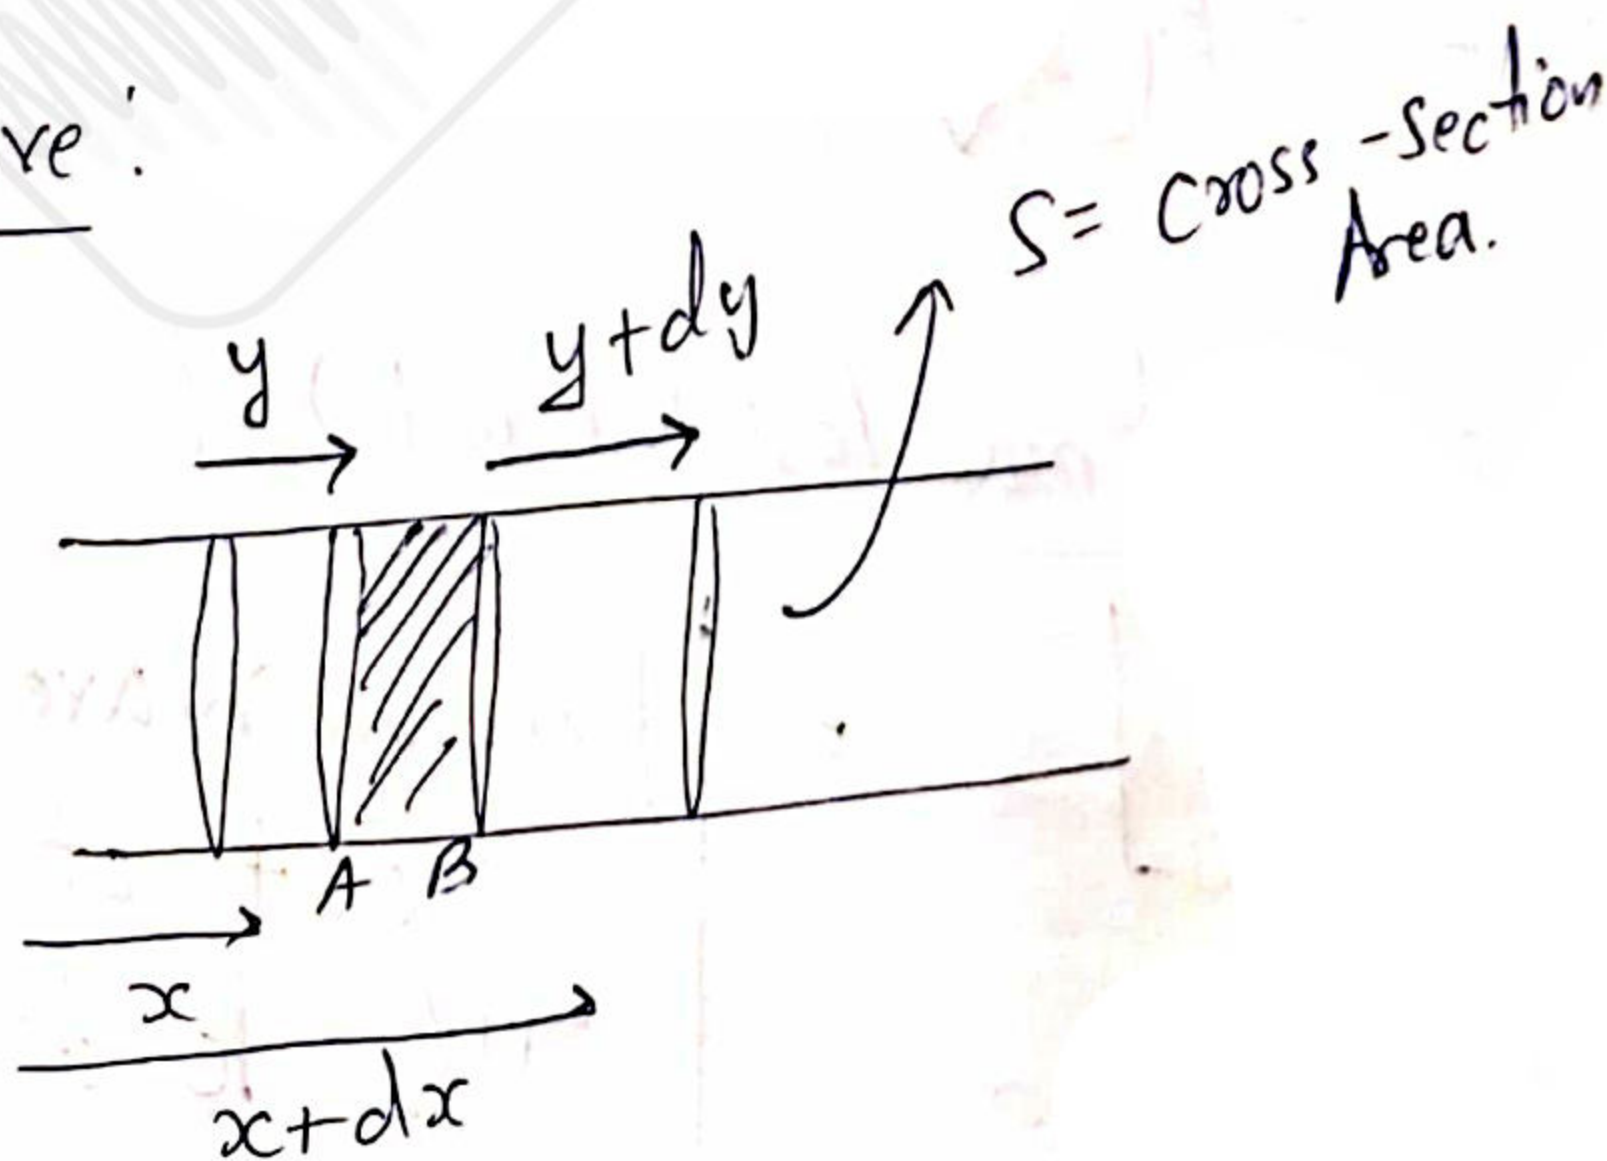 ve :
S = Cross-Section
Area.
y
y+dy
A B
x
x+dx